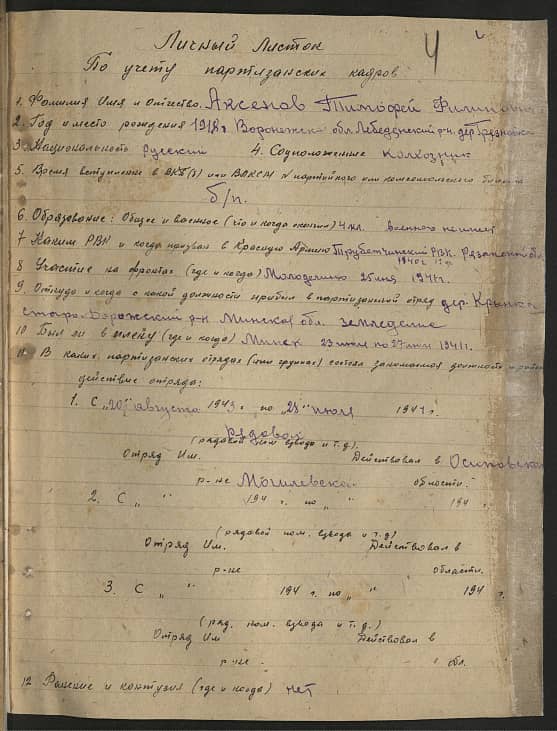 4
Личный Листок
По учету партизанских кадров
1. Фамилия Имя и Отчество. Аксенов Тимофей
2. Год и место рождения 1918 г. Воронежск обл. Лебедянский р-н дер. Грязновка
3. Национальность русский 4. Соцположение колхозник
5. Время вступления в ВКП(б) или ВЛКСМ № партийного или комсомольского билета
б/п.
6. Образование: Общее и военное (что и когда окончил) 4 кл. военного не имеет
7 Каким РВК и когда призван в Красную Армию Трубетчинский РВК. Рязанской обл.
1940 г.
8 Участие на фронтах (где и когда) Молодечно 25 июня 1941 г.
9. Откуда и когда с какой должности прибыл в партизанский отряд дер. Крынка
р-н Минской обл. земледелие
10 Был ли в плену (где и когда) Минск 23 июня по 27 июня 1941 г.
11 В каких партизанских отрядах (или группах) состоял занимаемая должность и район
действие отряда:
1. С „20" августа 1943 г. по „28" июля 1944 г.
рядовой
(рядовой ком. взвода и т.д.)
Отряд Им. Действовал в Осиповск
р-не Могилевской области.
2. С „ " 194 г. по „ " 194
(рядовой ком. взвода и т.д.)
Отряд Им. Действовал в
р-не Области.
3. С „ " 194 г. по „ " 194 г.
(ряд. ком. взвода и т.д.)
Отряд Им Действовал в
р-не. обл.
12 Ранение и контузия (где и когда) нет